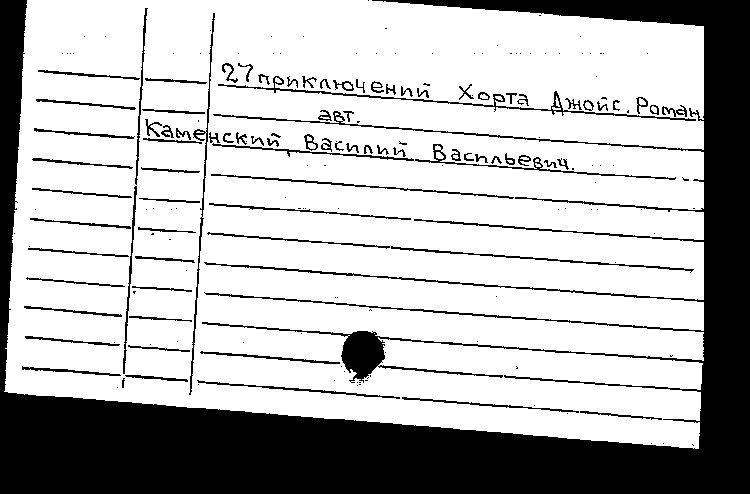 27 приключений Хорта Джойс. Роман
авт.
Каменский, Василий Васильевич.